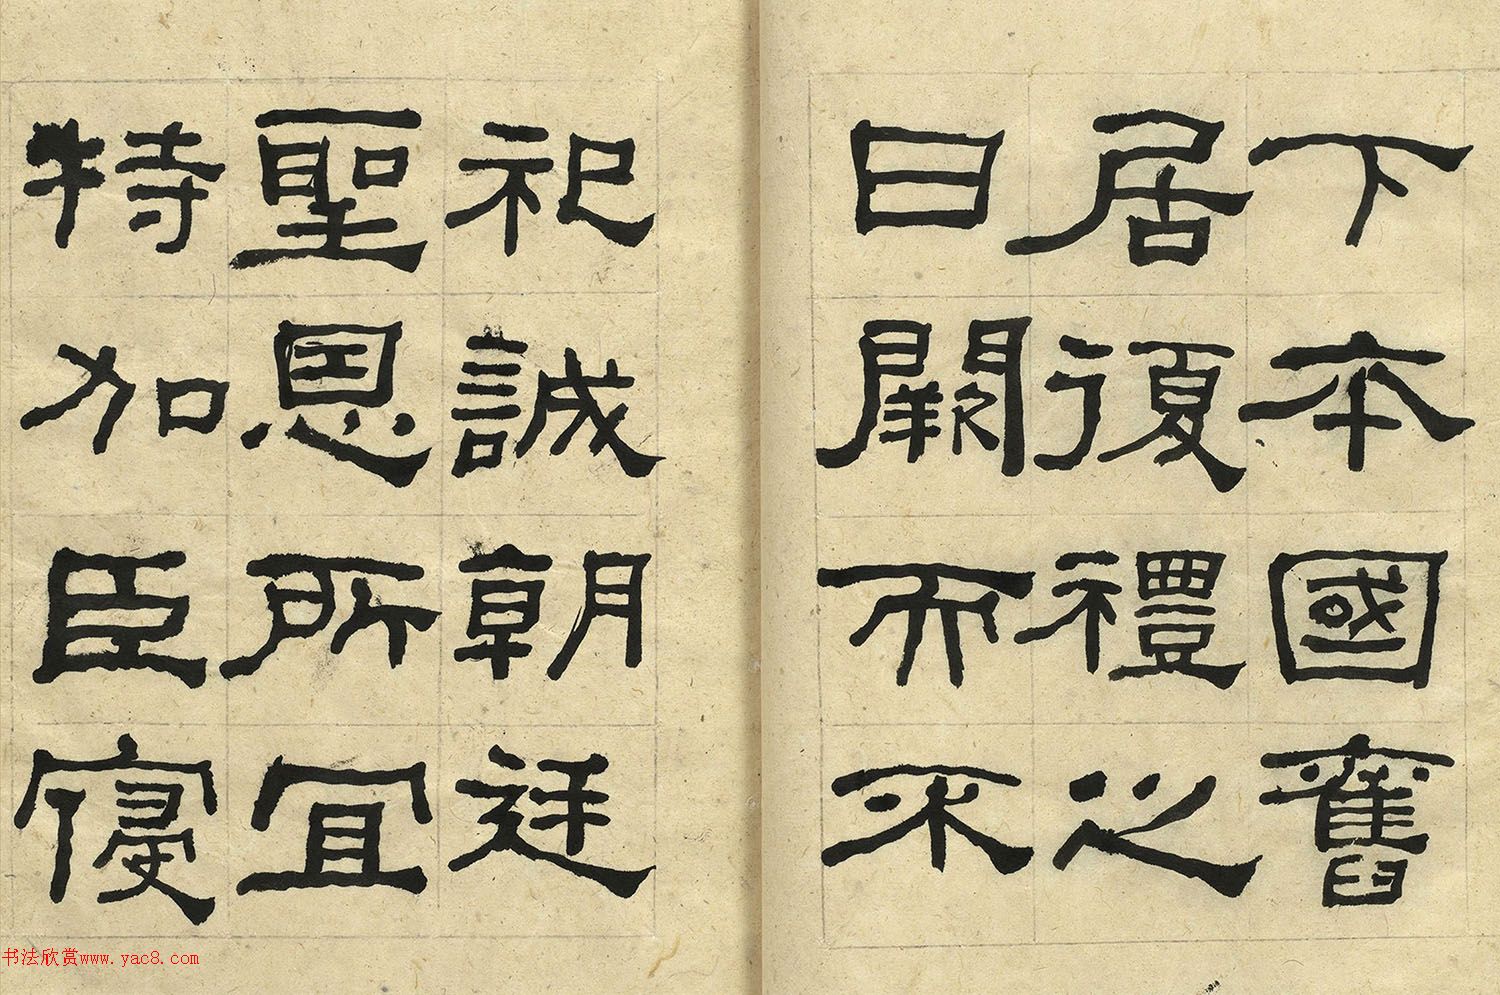 下本國舊
居復禮之
日闕而不
祀誠朝廷
聖恩所宜
特加臣寑
书法欣赏www.yac8.com